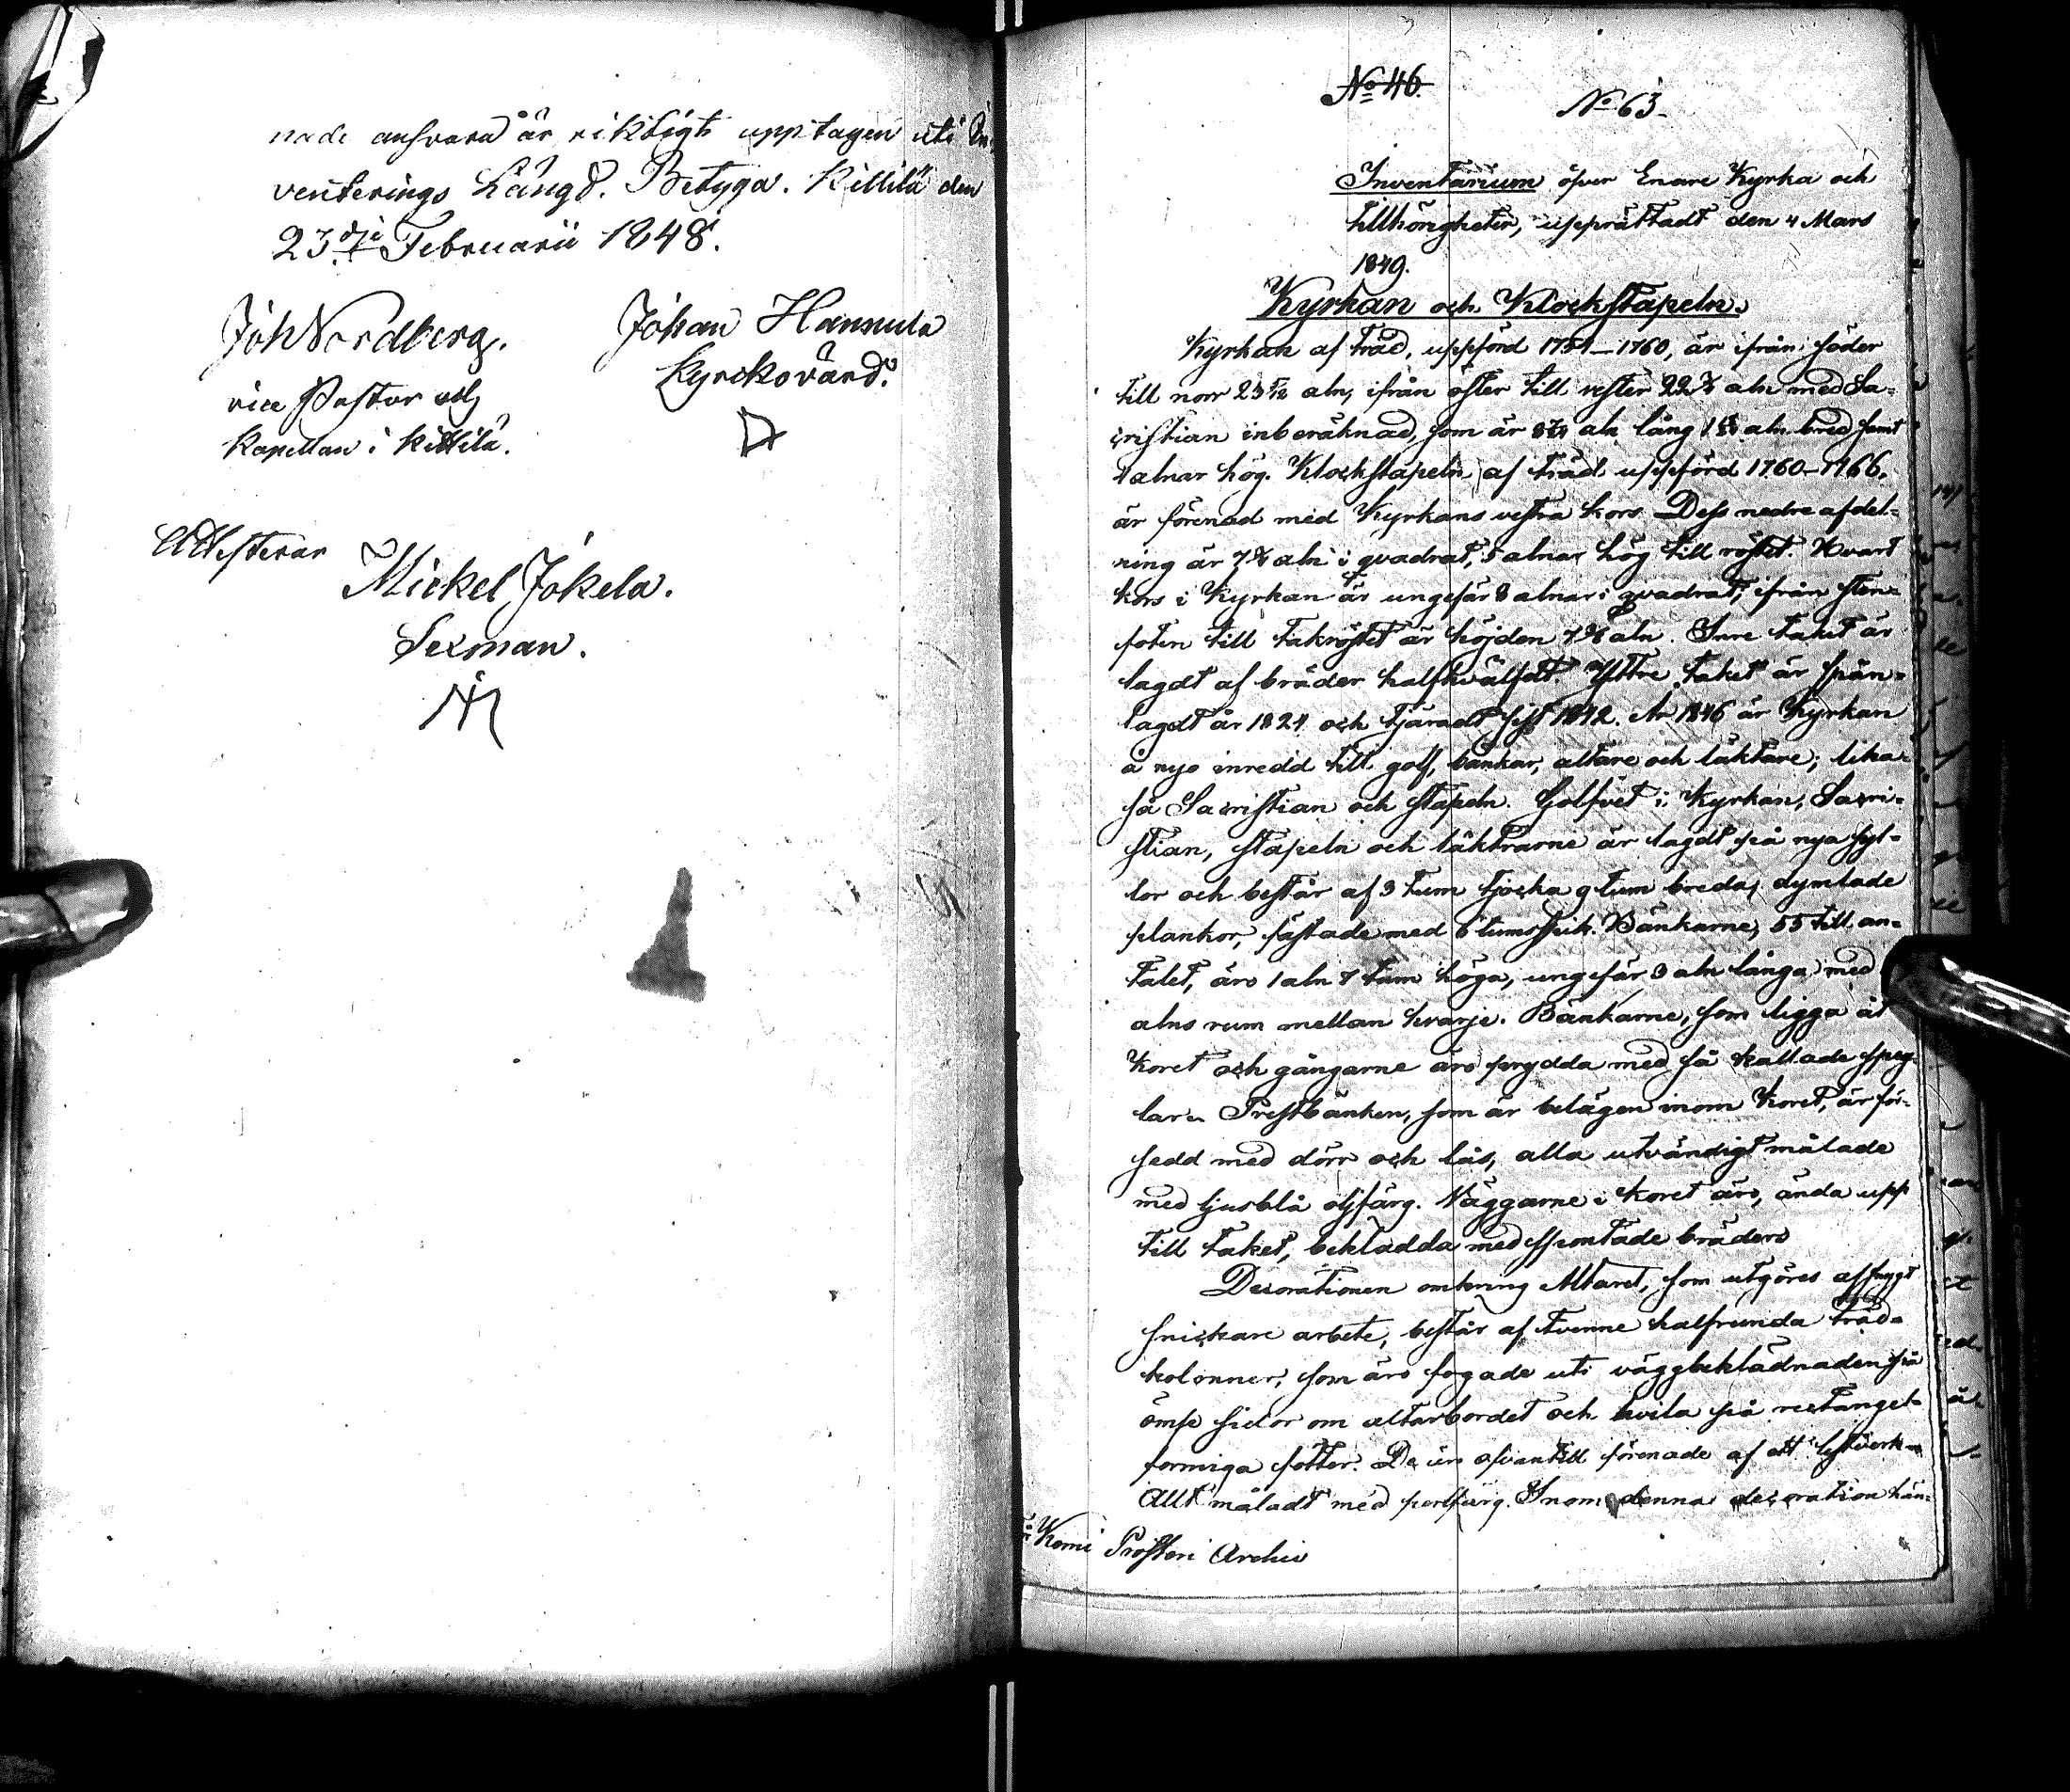 nade ansvara är riktigt upptagen uti In-
venterings Längd. Betyga. Kittilä den
23dje Februarii 1848.
Joh Nordberg.
vice Pastor och
Kapellan i Kittilä.
Johan Hannula
Kyrckovärd.
Attesterar
Mickel Jokela.
Sexman.
No 46.
No 63.
Inventarium öfver Enare Kyrka och
tillhörigheter, upprättadt den 4 Mars
1849.
Kyrkan och Klockstapeln.
Kyrkan af träd, uppförd 1754–1760, är ifrån söder
till norr aln, ifrån öster till vester aln med Sa-
cristian inberäknad, som är aln lång aln bred samt
alnar hög. Klockstapeln af träd uppförd 1760–1766,
är förenad med Kyrkans vestra kors. Dess nedre afdel-
ning är aln i qvadrat, 5 alnar hög till röstet. Hvart
kors i Kyrkan är ungefär 8 alnar i qvadrat; ifrån sten-
foten till takröstet är höjden aln. Inre taket är
lagdt af bräder halfhvälfdt. Yttre taket är spån-
lagdt år 1824 och tjäradt sist 1842. År 1846 är Kyrkan
å nyo inredd till golf, bänkar, altare och läktare; lika-
så Sacristian och stapeln. Golfvet i Kyrkan, Sacri-
stian, stapeln och läktrarne är lagdt på nya syl-
lor och består af 3 tum tjocka 9 tum breda, dymlade
plankor, fästade med 6 tums spik. Bänkarne, 55 till an-
talet, äro 1 aln 7 tum höga, ungefär 3 aln långa med
alns rum mellan hvarje. Bänkarne, som ligga åt
Koret och gångarne äro prydda med så kallade speg-
lar. Prestbänken, som är belägen inom Koret, är för-
sedd med dörr och lås, alla utvändigt målade
med ljusblå oljfärg. Väggarne i Koret äro, ända upp
till taket, beklädda med spontade bräder.
Decorationen omkring Altaret, som utgöres af snyggt
snickare arbete, består af tvenne halfrunda träd-
kolonner, som äro fogade uti väggbeklädnaden på
ömse sidor om altarbordet och hvila på rectangel-
formiga fötter. De äro ofvantill förenade af ett listverk.
Allt måladt med perlfärg. Inom denna decoration hän-
Kemi Prosteri Archiv